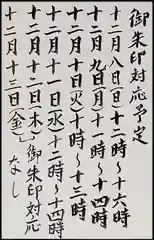 御朱印対応予定
十二月八日(日)十二時～十六時
十二月九日(月)十一時～十四時
十二月十日(火)十時～十三時
十二月十一日(水)十二時～十四時
十二月十二日(木)御朱印対応
十二月十三日(金)なし